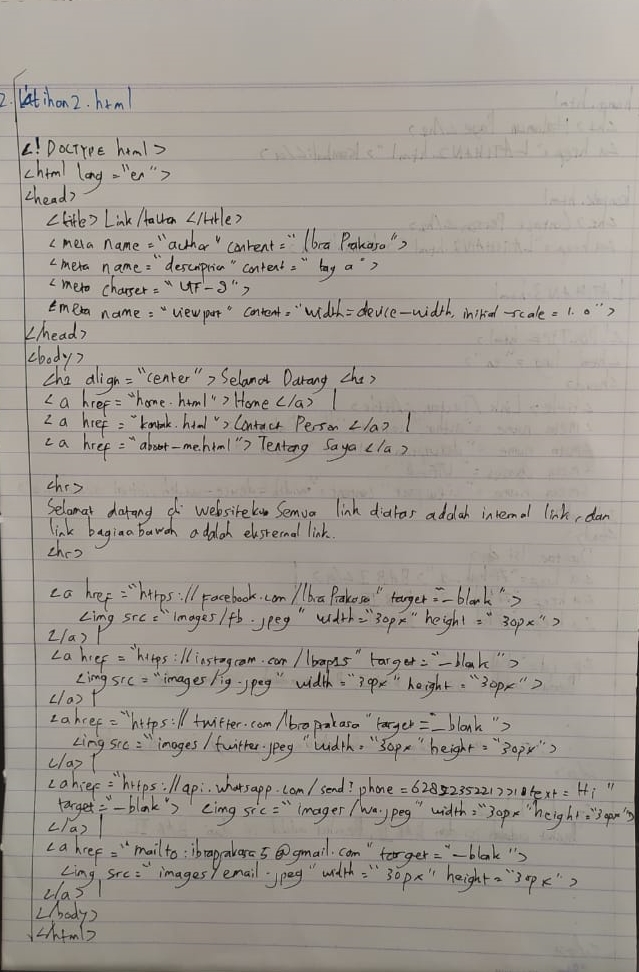 2. Latihan2.html
<!DOCTYPE html>
<html lang="en">
<head>
<title> Link/tautan </title>
<meta name="author" content="Ibra Prakasa">
<meta name="description" content="tag a">
<meta charset="UTF-8">
<meta name="viewport" content="width=device-width, initial-scale=1.0">
</head>
<body>
<h2 align="center"> Selamat Datang <h2>
<a href="home.html"> Home </a> |
<a href="kontak.html"> Contact Person </a> |
<a href="about-me.html"> Tentang Saya </a>
<hr>
Selamat datang di websiteku Semua link diatas adalah internal link, dan
link bagian bawah adalah eksternal link.
<hr>
<a href="https://facebook.com/Ibra Prakasa" target="_blank">
<img src="images/fb.jpeg" width="30px" height="30px">
</a> |
<a href="https://instagram.com/" target="_blank">
<img src="images/ig.jpeg" width="30px" height="30px">
</a> |
<a href="https://twitter.com/Ibraprakasa" target="_blank">
<img src="images/twitter.jpeg" width="30px" height="30px">
</a> |
<a href="https://api.whatsapp.com/send?phone= text=Hi"
target="_blank"> <img src="images/wa.jpeg" width="30px" height="30px">
</a> |
<a href="mailto: @gmail.com" target="_blank">
<img src="images/email.jpeg" width="30px" height="30px">
</a> |
</body>
</html>